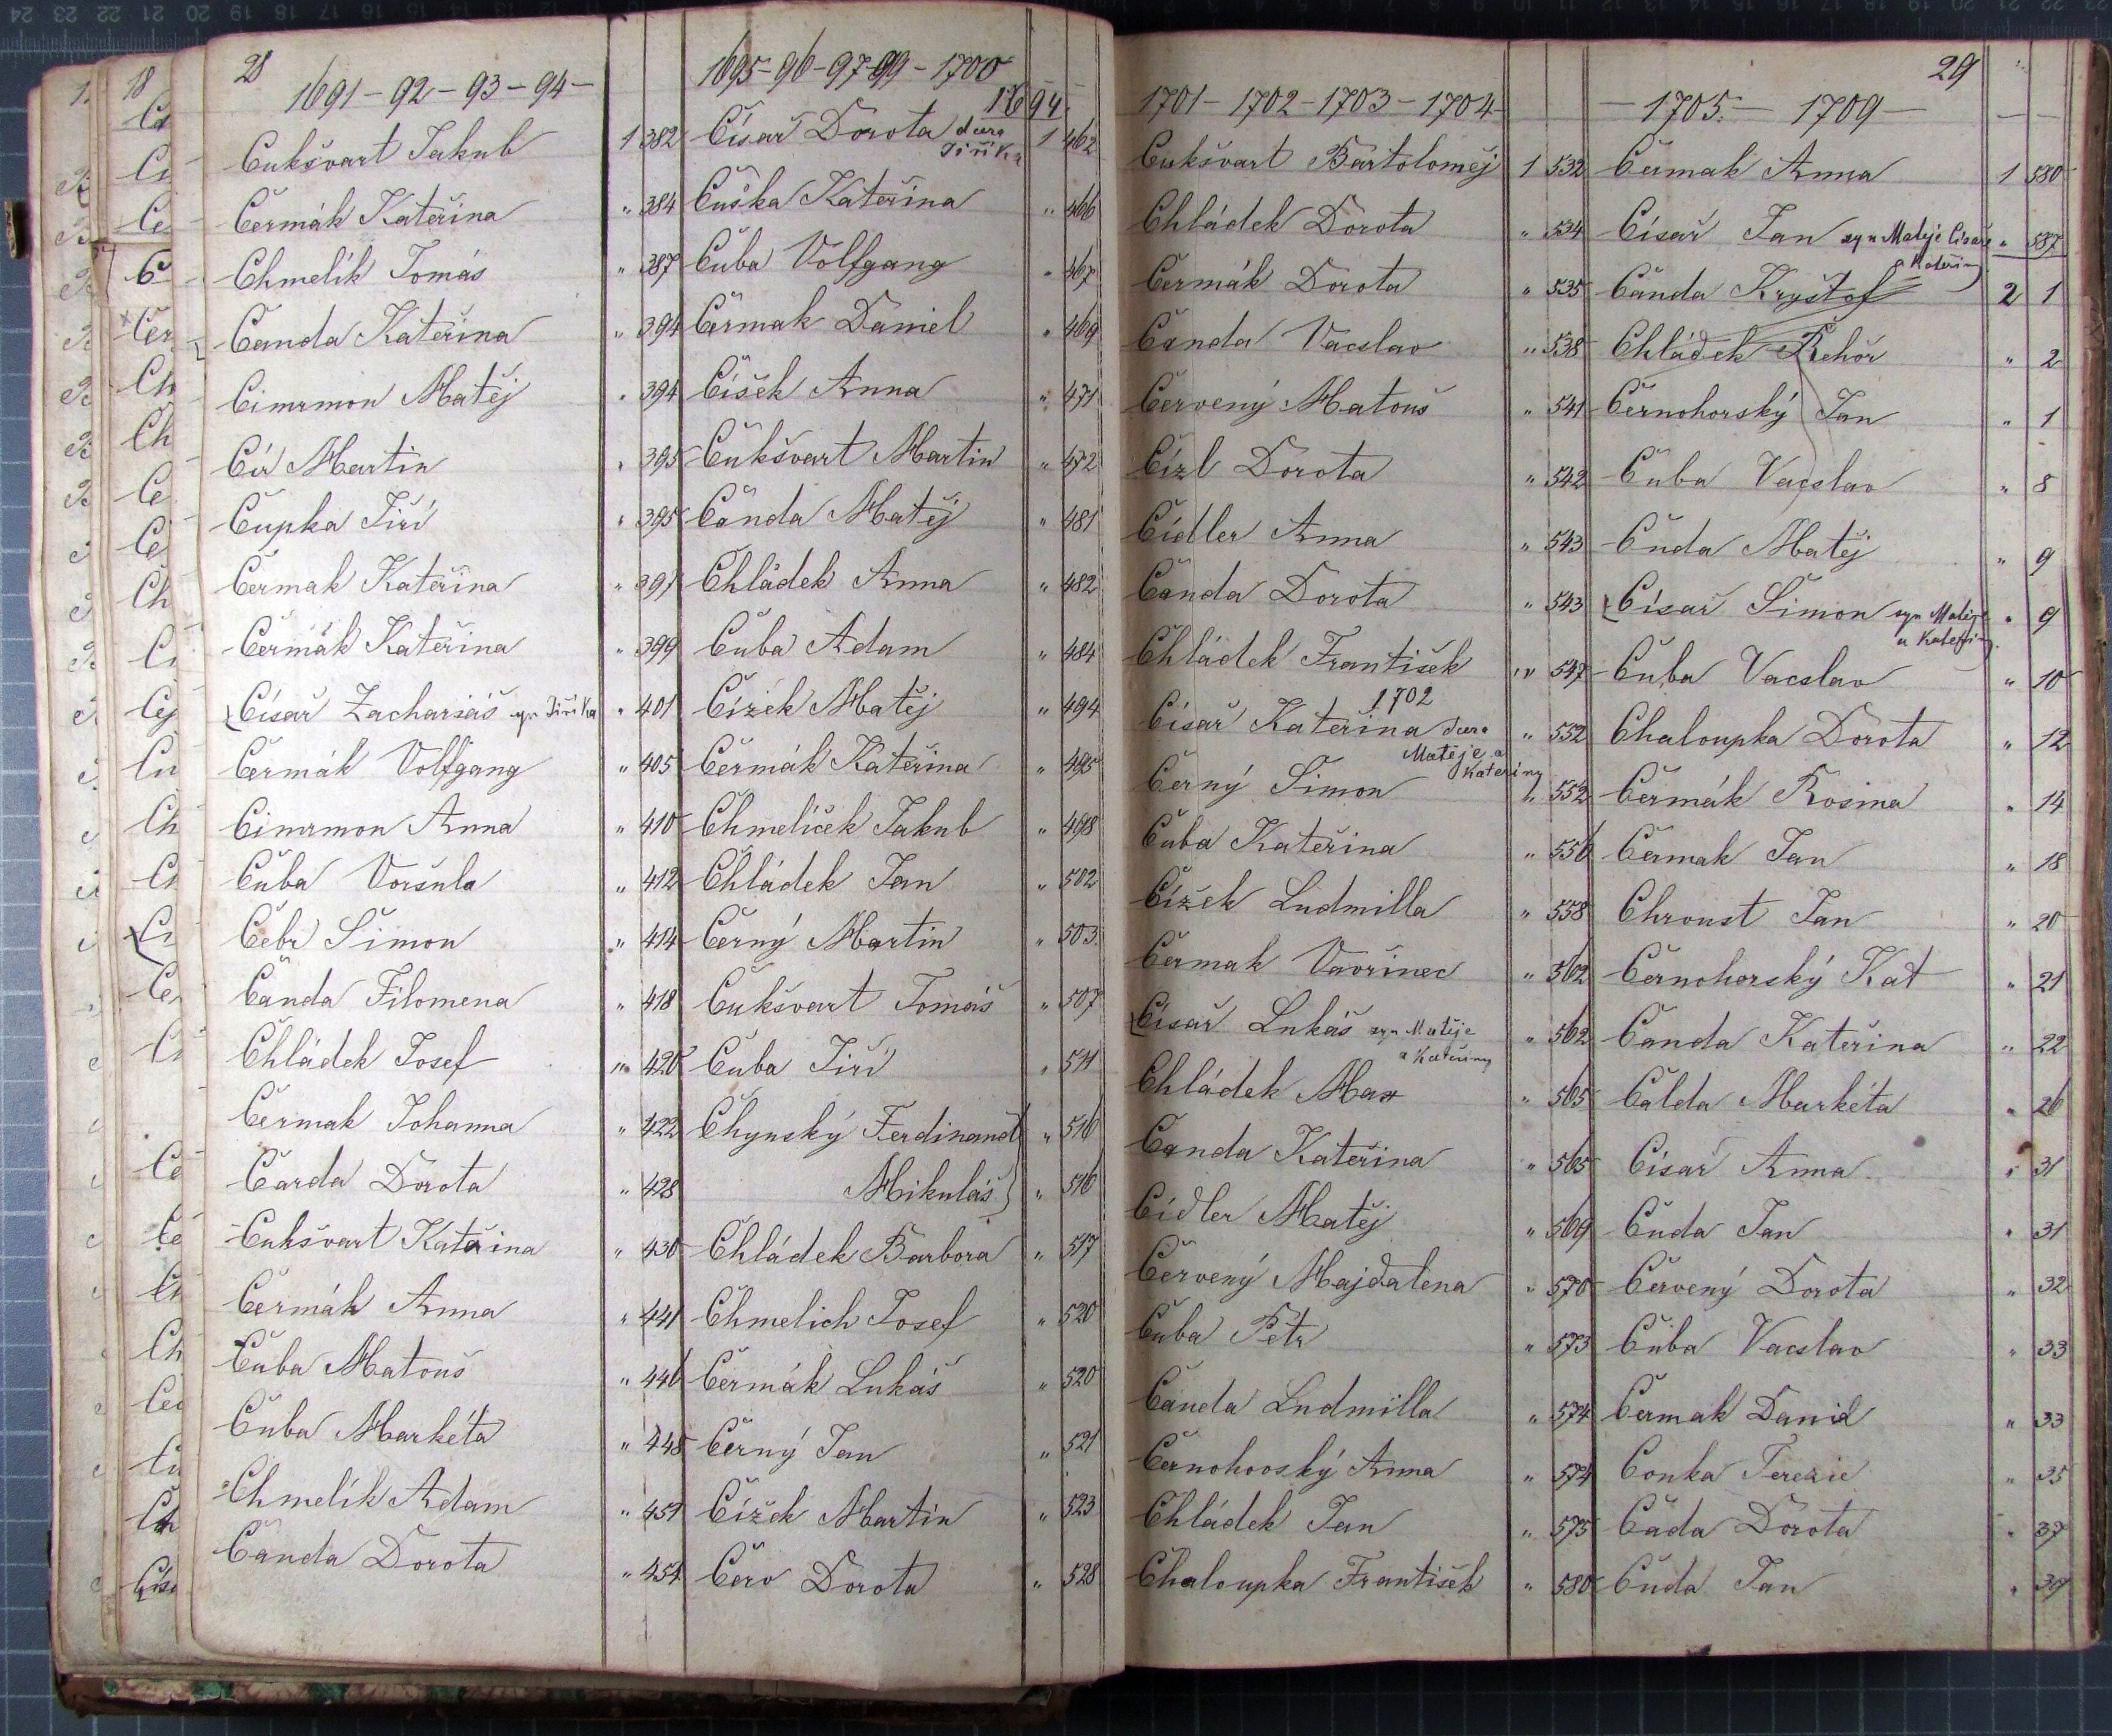 28
1691-92-93-94-
Cukšvart Jakub 1 382
Čermák Kateřina " 384
Chmelík Tomás " 387
Čanda Kateřina " 394
Cimrmon Matěj " 394
Cír Martin " 395
Cupka Jiří " 395
Čermak Kateřina " 397
Čermák Kateřina " 399
Císař Zachariáš syn Jiříka " 401
Čermák Volfgang " 405
Cimrmon Anna " 410
Čuba Voršula " 412
Čebr Šimon " 414
Čanda Filomena " 418
Chládek Josef " 420
Čermak Johanna " 422
Čarda Dorota " 428
Cukšvart Kateřina " 430
Čermák Anna " 441
Čuba Matouš " 446
Čuba Markéta " 448
Chmelík Adam " 451
Čanda Dorota " 454
1695-96-97-99-1700
1694.
Císař Dorota dcera Jiříka 1 462
Čuška Kateřina " 466
Čuba Volfgang " 467
Čermak Daniel " 469
Číšek Anna " 471
Cukšvart Martin " 472
Čanda Matěj " 481
Chládek Anna " 482
Čuba Adam " 484
Čížek Matěj " 494
Čermák Kateřina " 495
Chmelíček Jakub " 498
Chládek Jan " 502
Černý Martin " 503
Cukšvart Tomáš " 507
Čuba Jiří " 511
Chynský Ferdinand " 516
Mikuláš " 516
Chládek Barbora " 517
Chmelich Josef " 520
Čermák Lukáš " 520
Černý Jan " 521
Čížek Martin " 523
Cero Dorota " 528
1701-1702-1703-1704
Cukšvart Bartoloměj 1 532
Chládek Dorota " 534
Čermák Dorota " 535
Čanda Vacslav " 538
Červený Matouš " 541
Cízl Dorota " 542
Cídler Anna " 543
Čanda Dorota " 543
Chládek František " 547
1702
Císař Kateřina dcera " 552
Matěje a Kateřiny
Černý Šimon " 552
Čuba Kateřina " 556
Čížek Ludmilla " 558
Čermak Vavřinec " 562
Císař Lukáš syn Matěje " 562
a Kateřiny
Chládek Max " 565
Čanda Kateřina " 565
Cídler Matěj " 569
Červený Majdalena " 570
Čuba Petr " 573
Čanda Ludmilla " 574
Černohorský Anna " 574
Chládek Jan " 575
Chaloupka František " 580
29
-1705- 1709-
Čermak Anna 1 580
Císař Jan syn Matěje Císaře " 587
a Kateřiny
Čanda Kryštof 2 1
Chládek Řehoř " 2
Černohorský Jan " 1
Čuba Vacslav " 8
Čuda Matěj " 9
Císař Šimon syn Matěje " 9
a Kateřiny
Čuba Vacslav " 10
Chaloupka Dorota " 12
Čermák Rosina " 14
Čermak Jan " 18
Chroust Jan " 20
Černohorský Kat " 21
Čanda Kateřina " 22
Čalda Markéta " 26
Císař Anna " 31
Čuda Jan " 31
Červený Dorota " 32
Čuba Vacslav " 33
Čermak Daniel " 33
Conka Terezie " 35
Čada Dorota " 37
Čuda Jan " 39